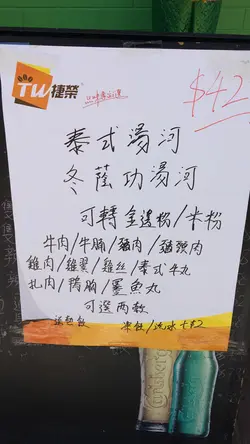 TW捷榮
$42
泰式湯河
冬蔭功湯河
可轉金邊粉/米粉
牛肉/牛腩/豬肉/豬頸肉
雞肉/雞翼/雞絲/泰式牛丸
扎肉/腩/墨魚丸
可選兩款
凍飲/汽水+$2
Carlsberg